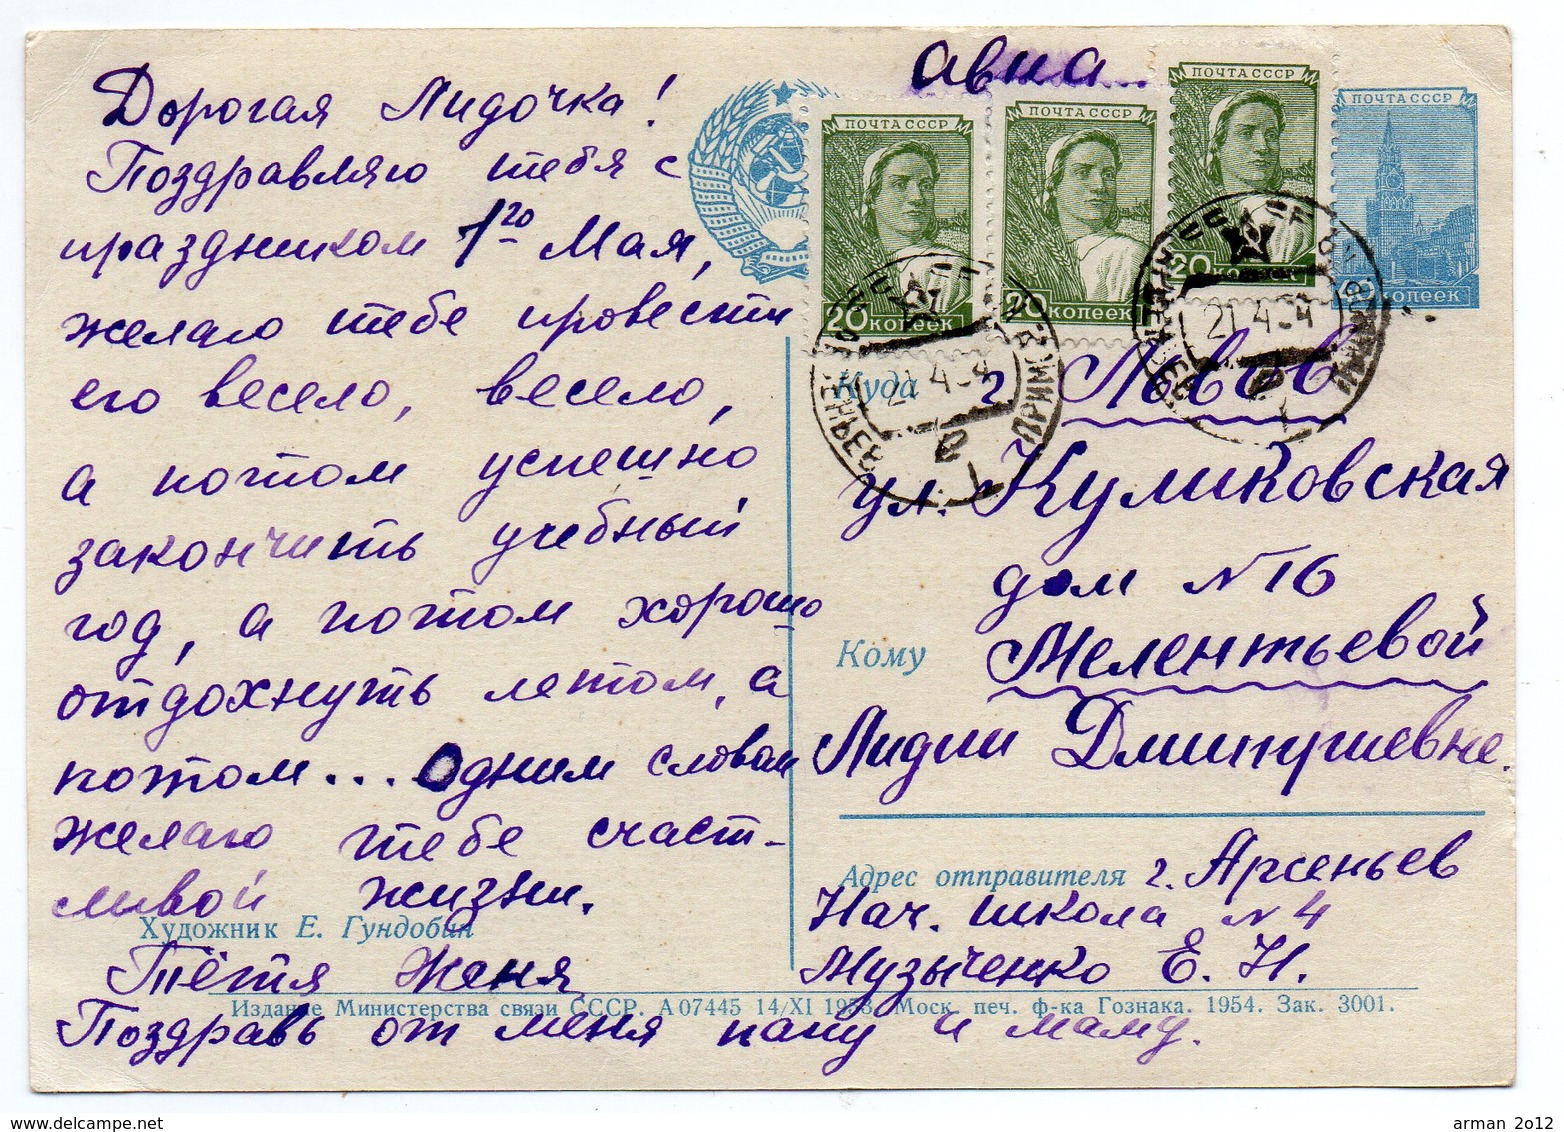 Дорогая Лидочка!
Поздравляю тебя с
праздником 1го Мая,
желаю тебе провести
его весело, весело,
а потом успешно
закончить учебный
год, а потом хорошо
отдохнуть летом, а
потом... Одним словом
желаю тебе счаст-
ливой жизни.
Художник Е. Гундобин
Тётя Женя
Поздравь от меня папу и маму.
авиа
ПОЧТА СССР
20 копеек
ПОЧТА СССР
20 копеек
ПОЧТА СССР
20 копеек
ПОЧТА СССР
копеек
21 4
21 4
Куда г. Львов
ул. Куликовская
дом № 16
Кому Мелентьевой
Лидии Дмитриевне.
Адрес отправителя г. Арсеньев
Нач. школа № 4
Музыченко Е. Н.
Издание Министерства связи СССР. А 07445 14/XI 1953. Моск. печ. ф-ка Гознака. 1954. Зак. 3001.
arman 2012